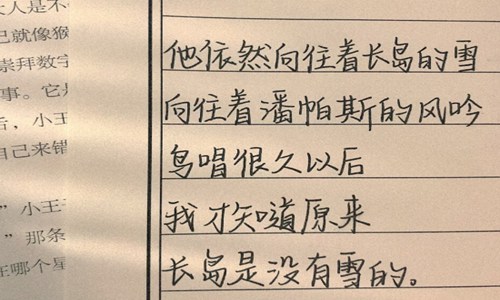 人是不
己就像猴
崇拜数字
事。它是
后，小王
自己来错
” 小王子
” 那条
在哪个星
他依然向往着长岛的雪
向往着潘帕斯的风吟
鸟唱很久以后
我才知道原来
长岛是没有雪的。